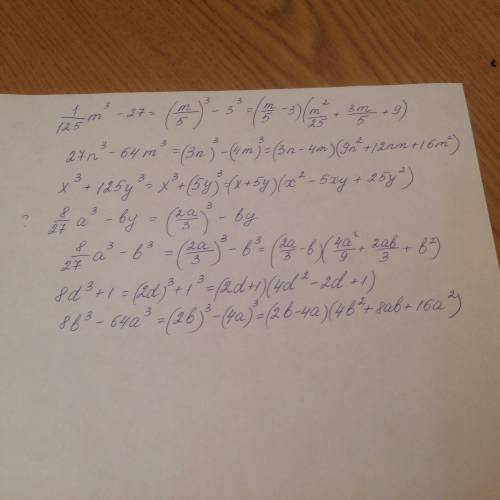 1/125 m³ - 27 = (m/5)³ - 3³ = (m/5 - 3)(m²/25 + 3m/5 + 9)
27n³ - 64m³ = (3n)³ - (4m)³ = (3n - 4m)(9n² + 12nm + 16m²)
x³ + 125y³ = x³ + (5y)³ = (x + 5y)(x² - 5xy + 25y²)
? 8/27 a³ - by = (2a/3)³ - by
8/27 a³ - b³ = (2a/3)³ - b³ = (2a/3 - b)(4a²/9 + 2ab/3 + b²)
8d³ + 1 = (2d)³ + 1³ = (2d + 1)(4d² - 2d + 1)
8b³ - 64a³ = (2b)³ - (4a)³ = (2b - 4a)(4b² + 8ab + 16a²)